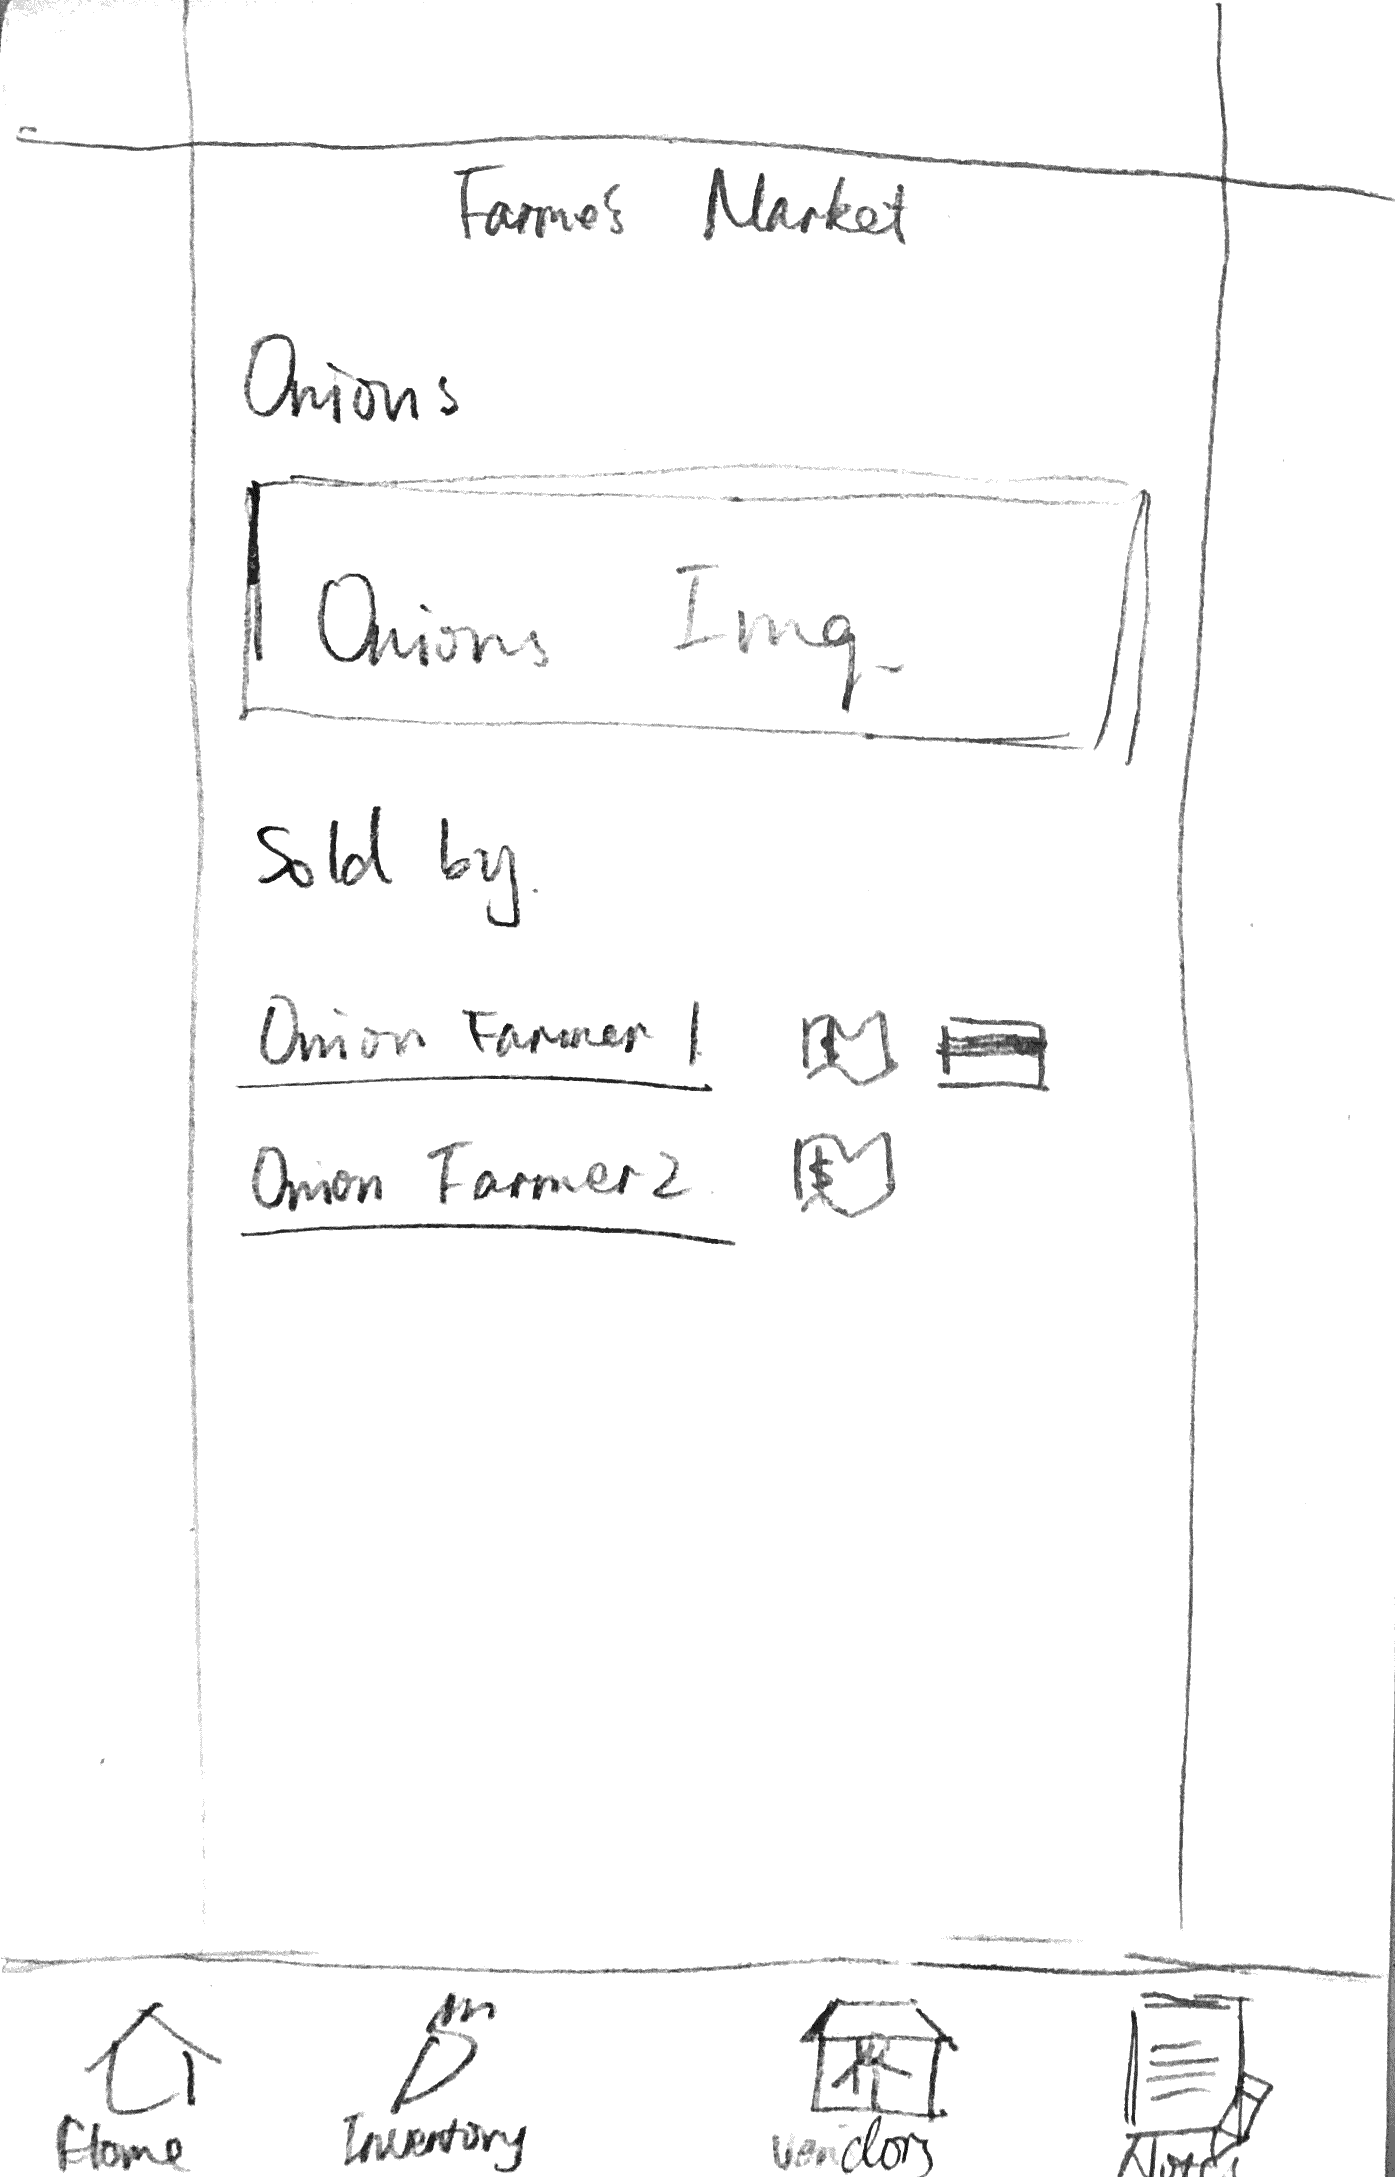 Farme's Market
Onions
Onions Img.
Sold by.
Onion Farmer 1
$
Onion Farmer 2
$
Home Inventory Vendors Notes